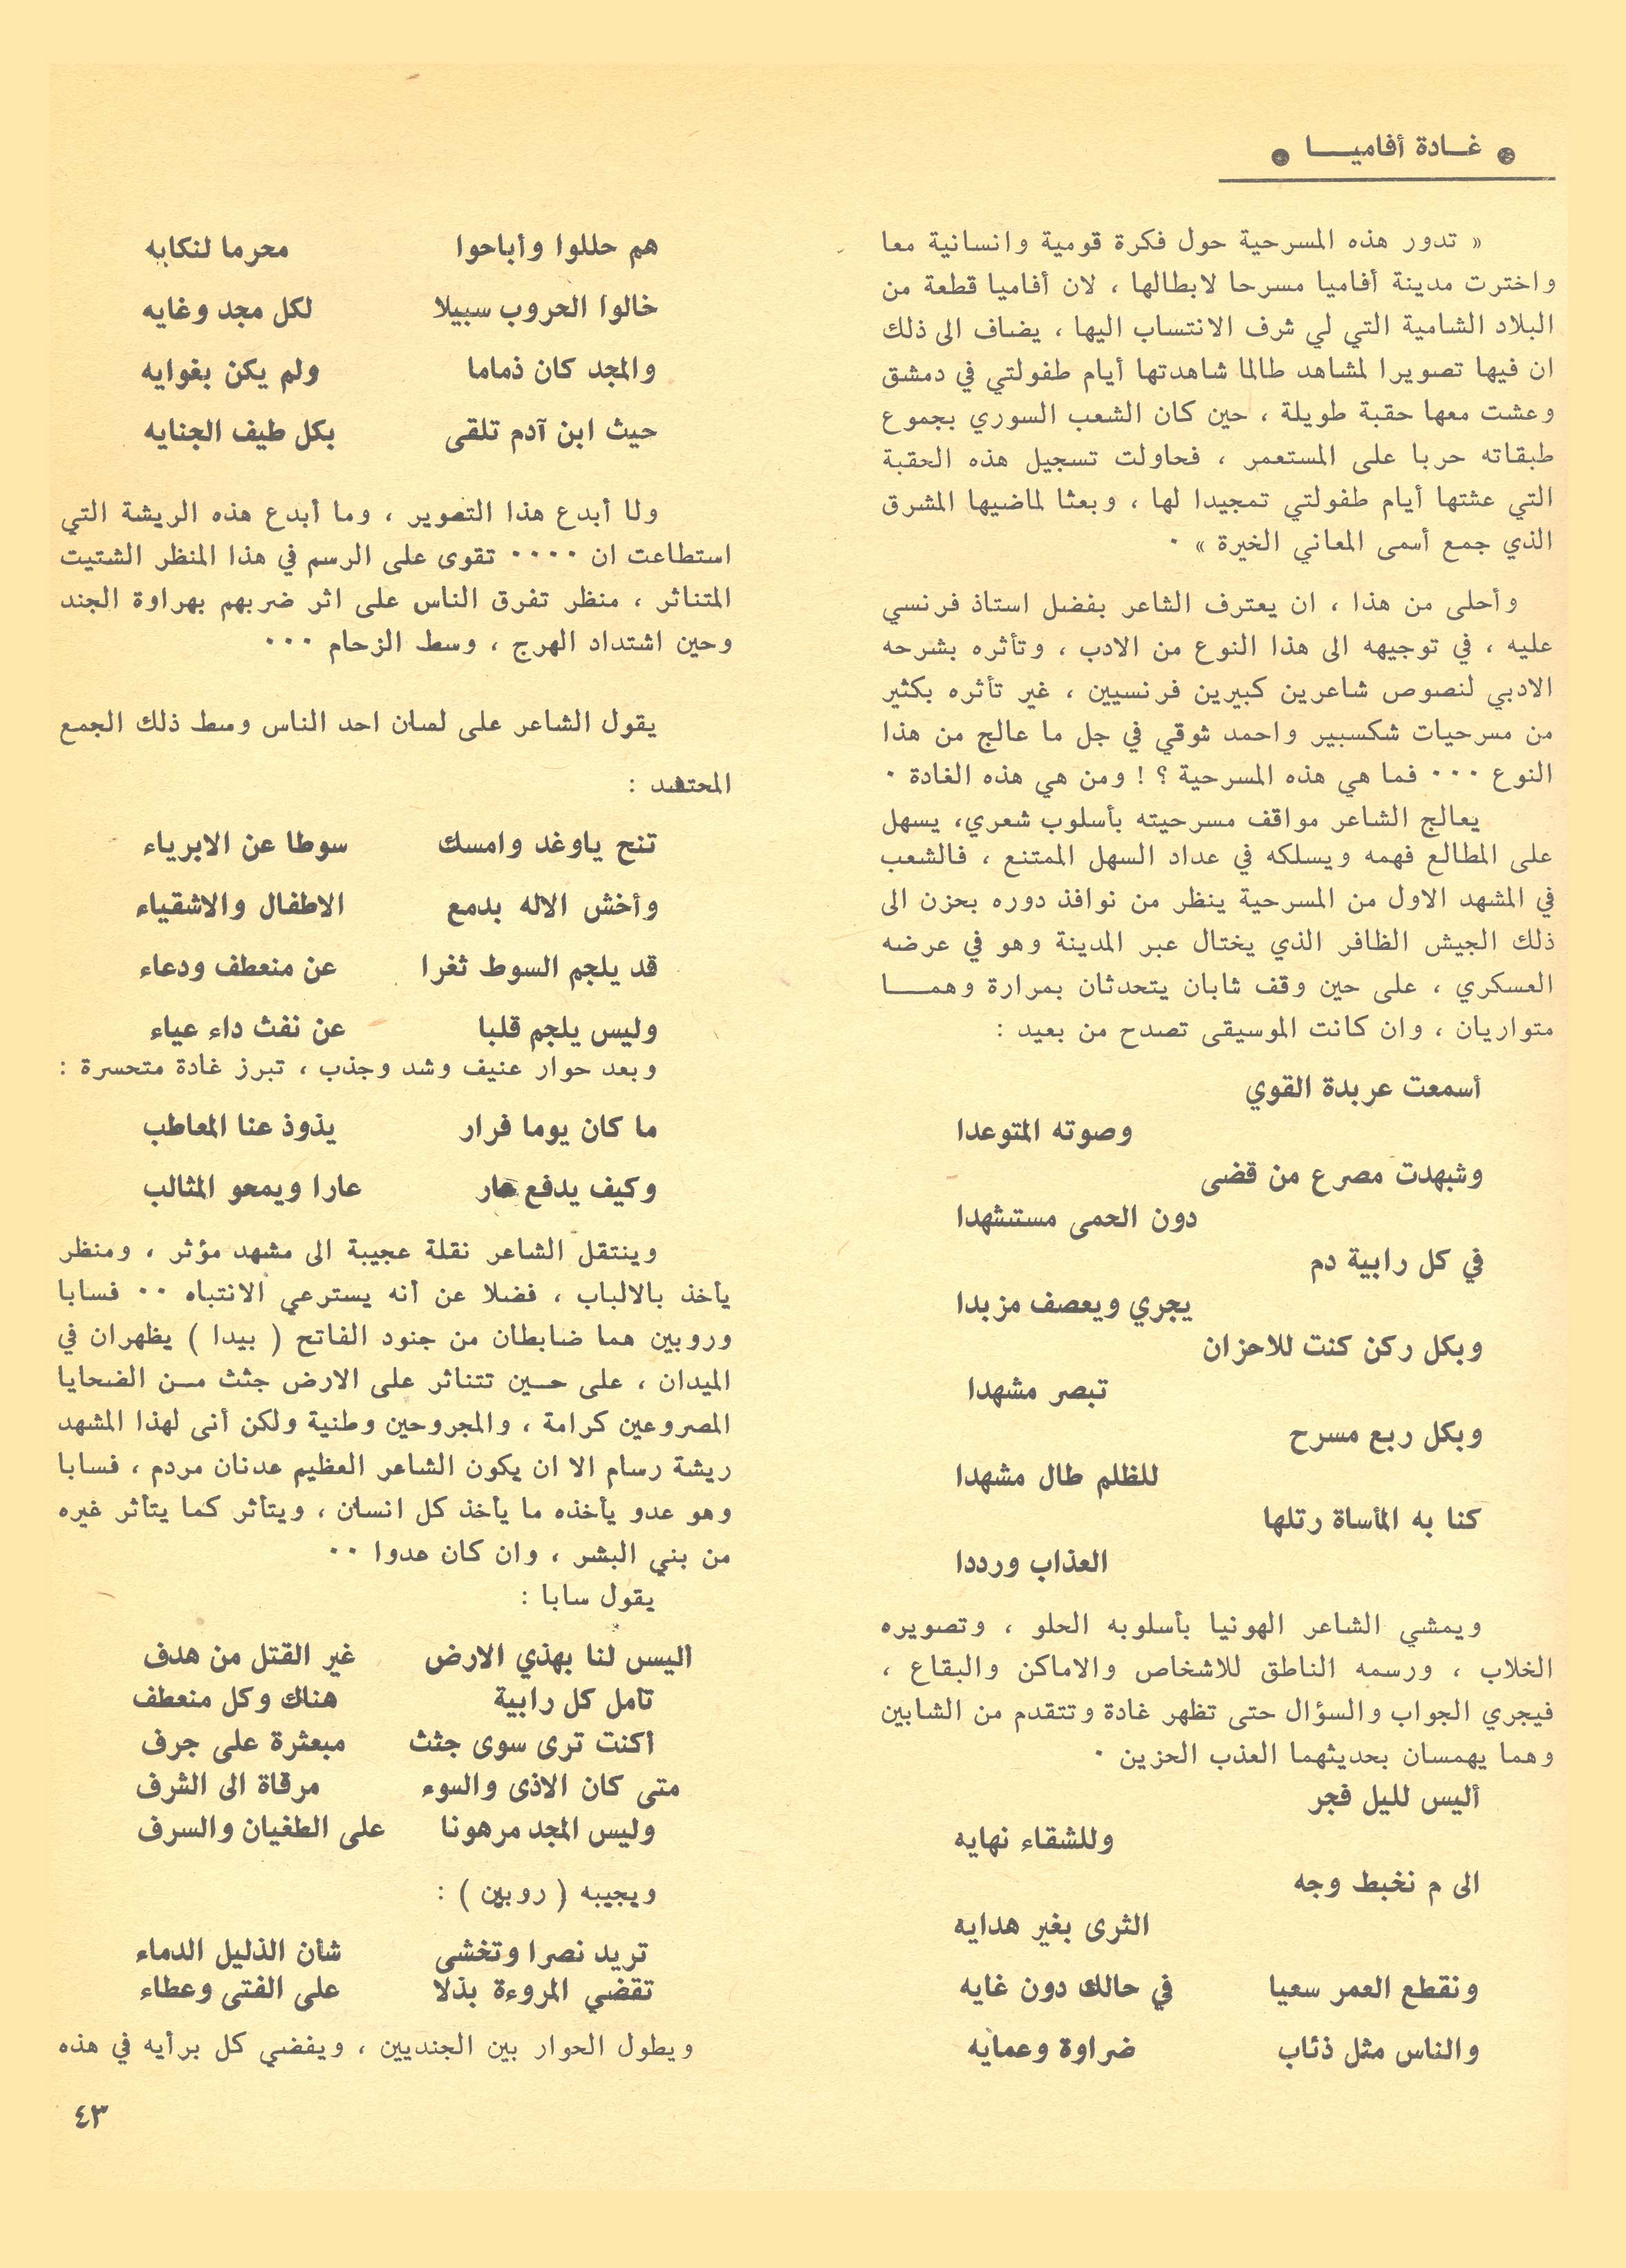 ● غــادة أفاميــــا ●
« تدور هذه المسرحية حول فكرة قومية وانسانية معا
واخترت مدينة أفاميا مسرحا لابطالها ، لان أفاميا قطعة من
البلاد الشامية التي لي شرف الانتساب اليها ، يضاف الى ذلك
ان فيها تصويرا لمشاهد طالما شاهدتها أيام طفولتي في دمشق
وعشت معها حقبة طويلة ، حين كان الشعب السوري بجموع
طبقاته حربا على المستعمر ، فحاولت تسجيل هذه الحقبة
التي عشتها أيام طفولتي تمجيدا لها ، وبعثا لماضيها المشرق
الذي جمع أسمى المعاني الخيرة » ٠
وأحلى من هذا ، ان يعترف الشاعر بفضل استاذ فرنسي
عليه ، في توجيهه الى هذا النوع من الادب ، وتأثره بشرحه
الادبي لنصوص شاعرين كبيرين فرنسيين ، غير تأثره بكثير
من مسرحيات شكسبير واحمد شوقي في جل ما عالج من هذا
النوع ٠٠٠ فما هي هذه المسرحية ؟ ! ومن هي هذه الغادة ٠
يعالج الشاعر مواقف مسرحيته بأسلوب شعري، يسهل
على المطالع فهمه ويسلكه في عداد السهل الممتنع ، فالشعب
في المشهد الاول من المسرحية ينظر من نوافذ دوره بحزن الى
ذلك الجيش الظافر الذي يختال عبر المدينة وهو في عرضه
العسكري ، على حين وقف شابان يتحدثان بمرارة وهمــــا
متواريان ، وان كانت الموسيقى تصدح من بعيد :
أسمعت عربدة القوي
وصوته المتوعدا
وشهدت مصرع من قضى
دون الحمى مستشهدا
في كل رابية دم
يجري ويعصف مزبدا
وبكل ركن كنت للاحزان
تبصر مشهدا
وبكل ربع مسرح
للظلم طال مشهدا
كنا به المأساة رتلها
العذاب ورددا
ويمشي الشاعر الهونيا بأسلوبه الحلو ، وتصويره
الخلاب ، ورسمه الناطق للاشخاص والاماكن والبقاع ،
فيجري الجواب والسؤال حتى تظهر غادة وتتقدم من الشابين
وهما يهمسان بحديثهما العذب الحزين ٠
أليس لليل فجر
وللشقاء نهايه
الى م نخبط وجه
الثرى بغير هدايه
ونقطع العمر سعيا في حالك دون غايه
والناس مثل ذئاب ضراوة وعمايه
هم حللوا وأباحوا محرما لنكايه
خالوا الحروب سبيلا لكل مجد وغايه
والمجد كان ذماما ولم يكن بغوايه
حيث ابن آدم تلقى بكل طيف الجنايه
ولا أبدع هذا التصوير ، وما أبدع هذه الريشة التي
استطاعت ان ٠٠٠٠ تقوى على الرسم في هذا المنظر الشتيت
المتناثر ، منظر تفرق الناس على اثر ضربهم بهراوة الجند
وحين اشتداد الهرج ، وسط الزحام ٠٠٠
يقول الشاعر على لسان احد الناس وسط ذلك الجمع
المحتشد :
تنح ياوغد وامسك سوطا عن الابرياء
وأخش الاله بدمع الاطفال والاشقياء
قد يلجم السوط ثغرا عن منعطف ودعاء
وليس يلجم قلبا عن نفث داء عياء
وبعد حوار عنيف وشد وجذب ، تبرز غادة متحسرة :
ما كان يوما فرار يذوذ عنا المعاطب
وكيف يدفع عار عارا ويمحو المثالب
وينتقل الشاعر نقلة عجيبة الى مشهد مؤثر ، ومنظر
يأخذ بالالباب ، فضلا عن أنه يسترعي الانتباه ٠٠ فسابا
وروبين هما ضابطان من جنود الفاتح ( بيدا ) يظهران في
الميدان ، على حــين تتناثر على الارض جثث مــن الضحايا
المصروعين كرامة ، والمجروحين وطنية ولكن أنى لهذا المشهد
ريشة رسام الا ان يكون الشاعر العظيم عدنان مردم ، فسابا
وهو عدو يأخذه ما يأخذ كل انسان ، ويتأثر كما يتأثر غيره
من بني البشر ، وان كان عدوا ٠٠
يقول سابا :
أليس لنا بهذي الارض غير القتل من هدف
تأمل كل رابية هناك وكل منعطف
أكنت ترى سوى جثث مبعثرة على جرف
متى كان الاذى والسوء مرقاة الى الشرف
وليس المجد مرهونا على الطغيان والسرف
ويجيبه ( روبين ) :
تريد نصرا وتخشى شأن الذليل الدماء
تقضي المروءة بذلا على الفتى وعطاء
ويطول الحوار بين الجنديين ، ويفضي كل برأيه في هذه
٤٣